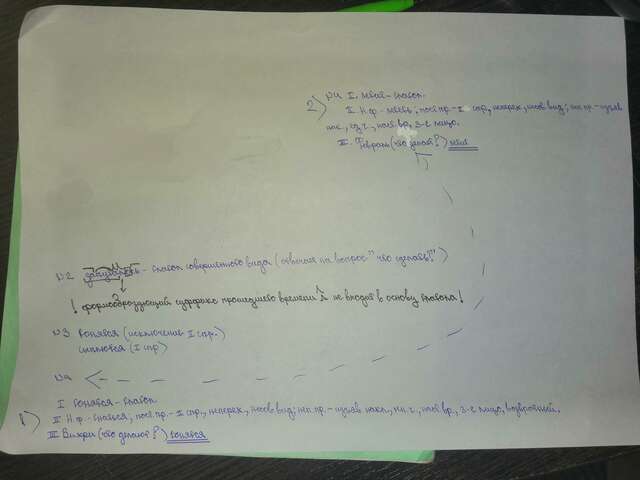 2) №4 I. Мчит - глагол.
II. Н.ф. - мчать; пост. пр. - I спр., неперех., несов. вид; неп. пр. - изъяв.
накл., ед. ч., наст. вр., 3-е лицо.
III. Февраль (что делает?)
№2 - глагол совершенного вида (отвечая на вопрос "что сделать?")
! формообразующий суффикс прошедшего времени л не входит в основу глагола!
№3 (исключение I спр.)
(I спр)
№4
1) I гонятся - глагол
II Н.ф. - пост. пр. - I спр., неперех., несов. вид; неп. пр. - изъяв. накл., мн. ч., наст. вр., 3-е лицо, возвратный.
III Вихри (что делают?) гонятся